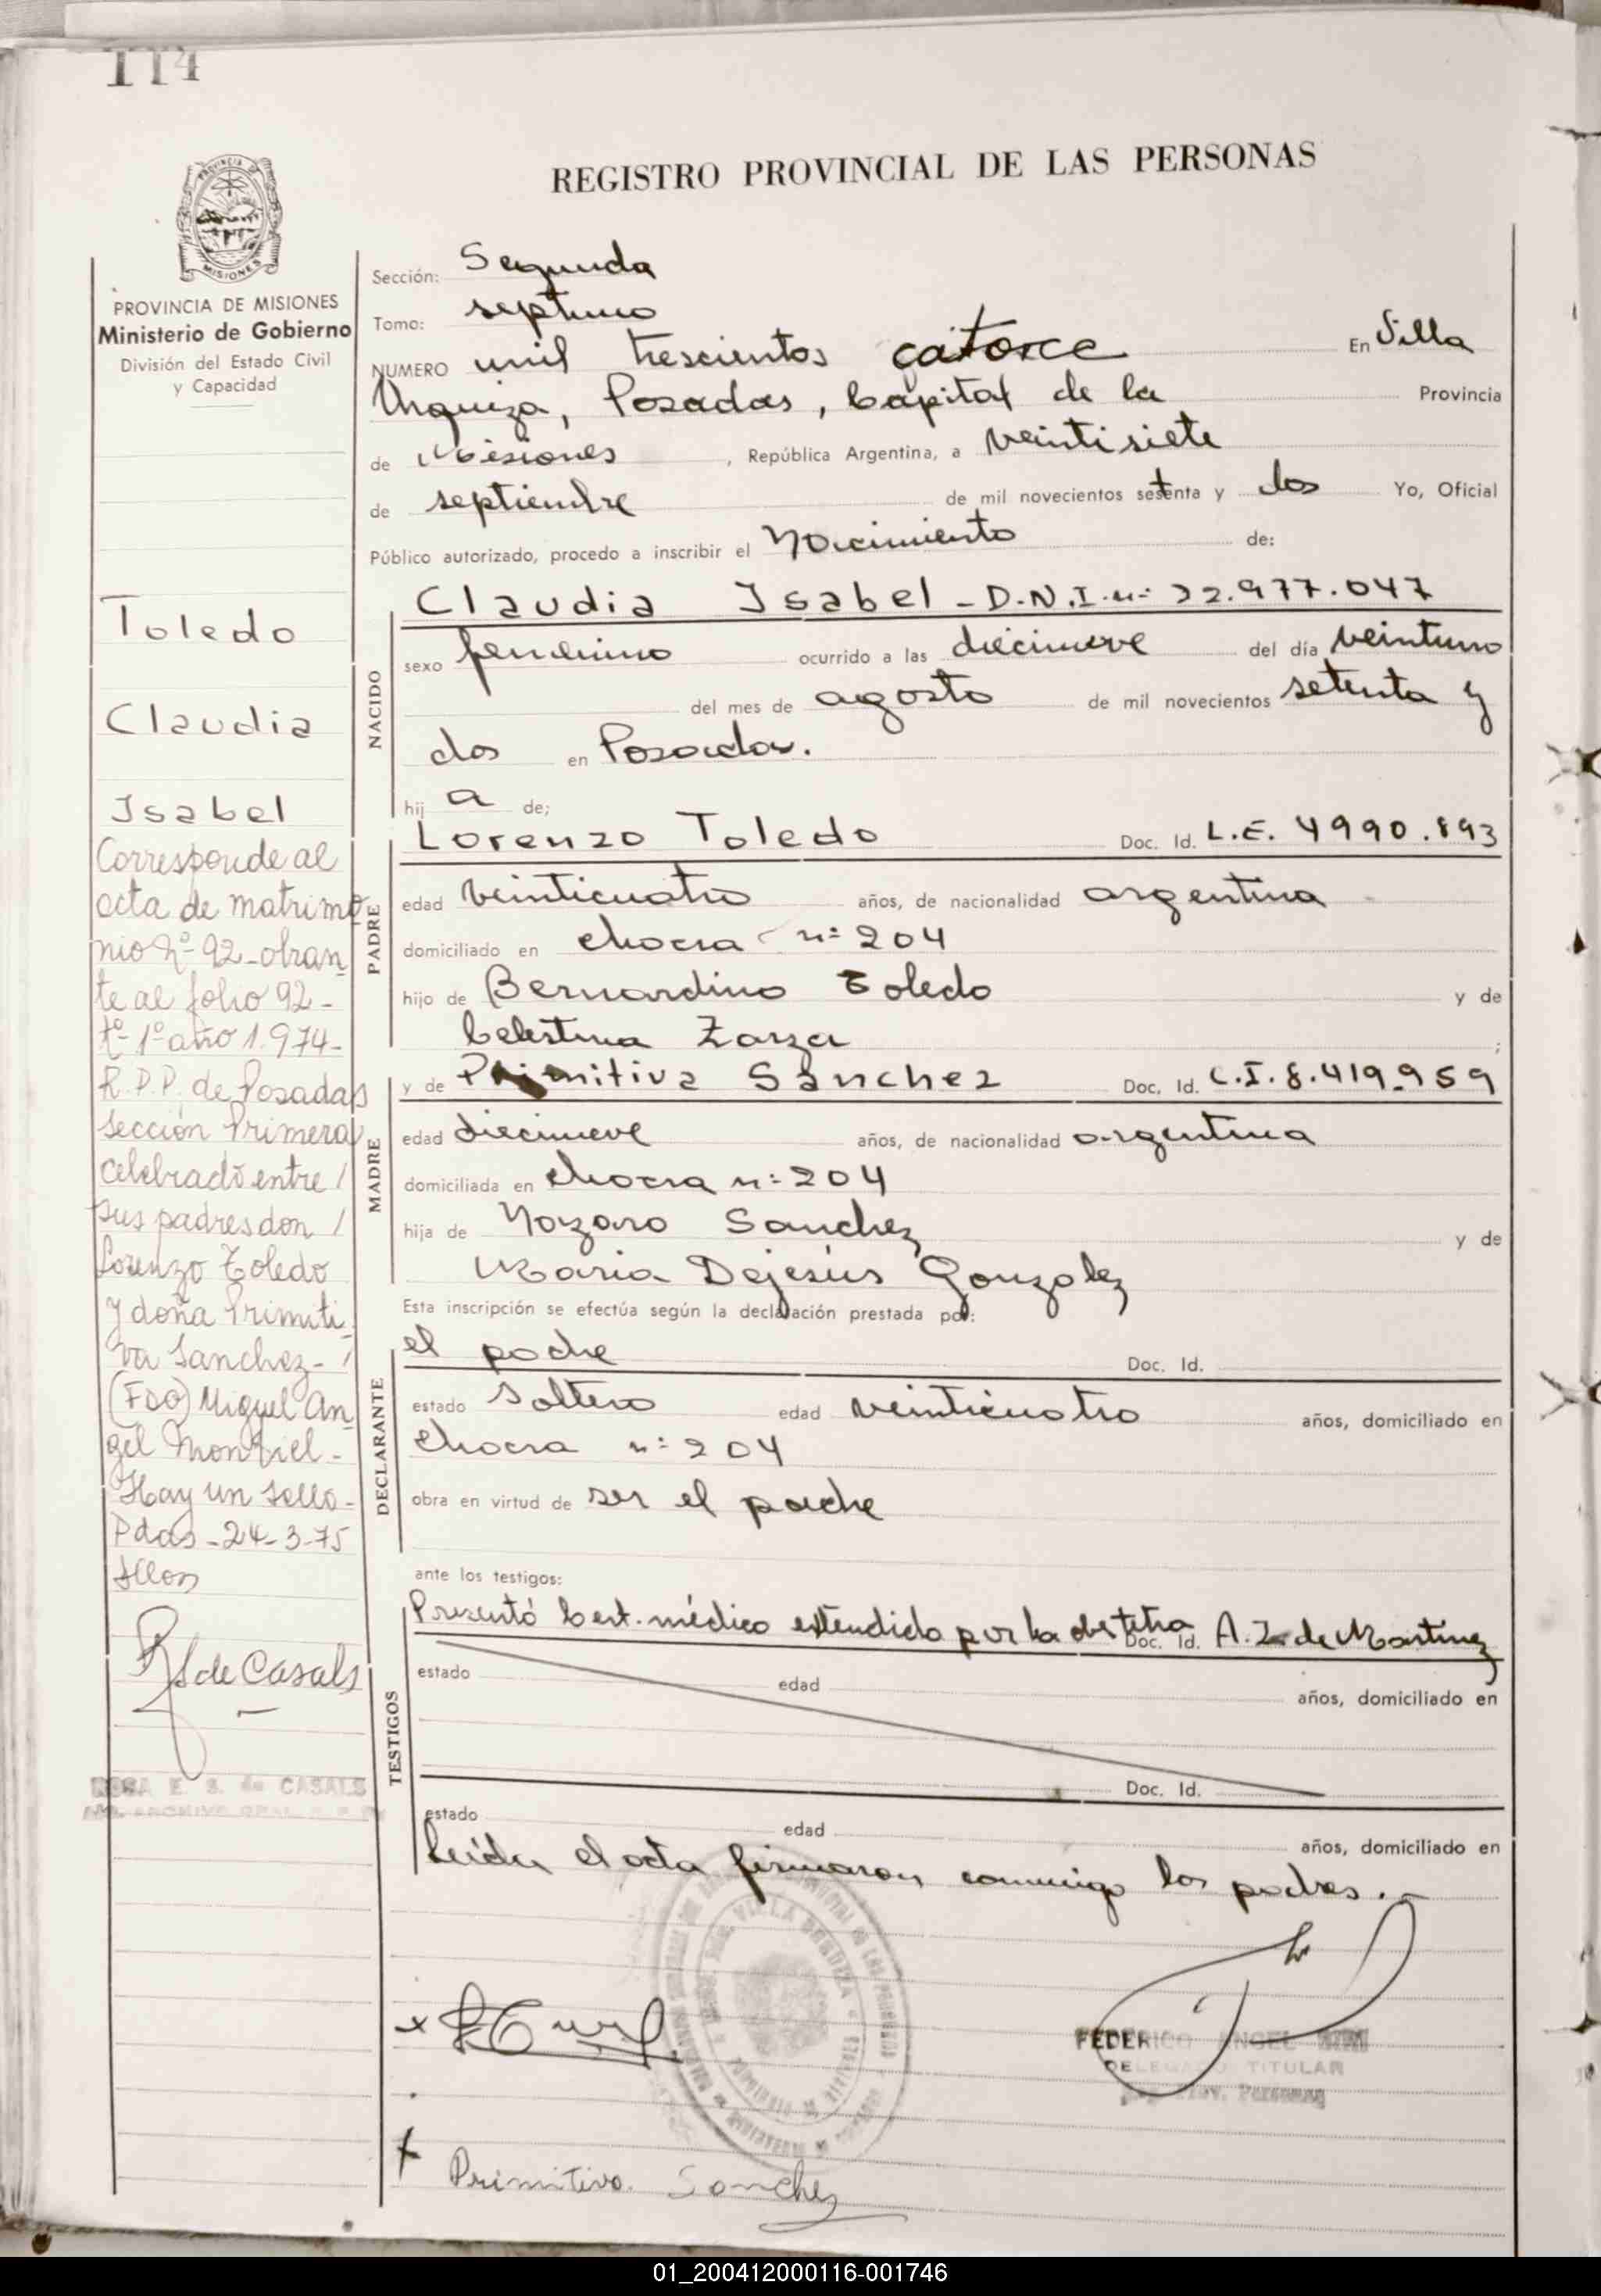 114
REGISTRO PROVINCIAL DE LAS PERSONAS
PROVINCIA DE MISIONES
Ministerio de Gobierno
División del Estado Civil
y Capacidad
Sección: Segunda
Tomo: septimo
NUMERO mil trescientos catorce En Villa
Urquiza, Posadas, Capital de la Provincia
de Misiones, República Argentina, a veintisiete
de septiembre de mil novecientos setenta y dos Yo, Oficial
Público autorizado, procedo a inscribir el Nacimiento de:
Toledo
Claudia
Isabel
Corresponde al
acta de matrimo
nio Nº 92 - obran
te al folio 92 -
tº 1º año 1.974 -
R.P.P. de Posadas
Sección Primera
celebrado entre /
sus padres don /
Lorenzo Toledo
y doña Primiti
va Sanchez - /
(FDO) Miguel An
gel Montiel -
Hay un sello -
Pdas - 24-3-75
de Casals
ROSA E. S. de CASALS
NACIDO
Claudia Isabel - D.N.I. nº 22.977.047
sexo femenino ocurrido a las diecinueve del día veintiuno
del mes de agosto de mil novecientos setenta y
dos en Posadas.
hij a de;
PADRE
Lorenzo Toledo Doc. Id. L.E. 4990.893
edad veinticuatro años, de nacionalidad argentina
domiciliado en chacra nº 204
hijo de Bernardino Toledo y de
Celestina Zarza ;
MADRE
y de Primitiva Sánchez Doc. Id. C.I. 8.419.959
edad diecinueve años, de nacionalidad argentina
domiciliada en chacra nº 204
hija de Nazaro Sanchez y de
Maria Dejesús Gonzalez
Esta inscripción se efectúa según la declaración prestada por:
DECLARANTE
el padre Doc. Id.
estado soltero edad veinticuatro años, domiciliado en
chacra nº 204
obra en virtud de ser el padre
ante los testigos:
TESTIGOS
Presentó Cert. médico extendido por la obstetra Doc. Id. A. Z. de Martinez
estado edad años, domiciliado en
Doc. Id.
estado edad años, domiciliado en
Leída el acta firmaron conmigo los padres.-
FEDERICO ANGEL
DELEGADO TITULAR
Prov. Personas
Primitiva Sanchez
01_200412000116-001746